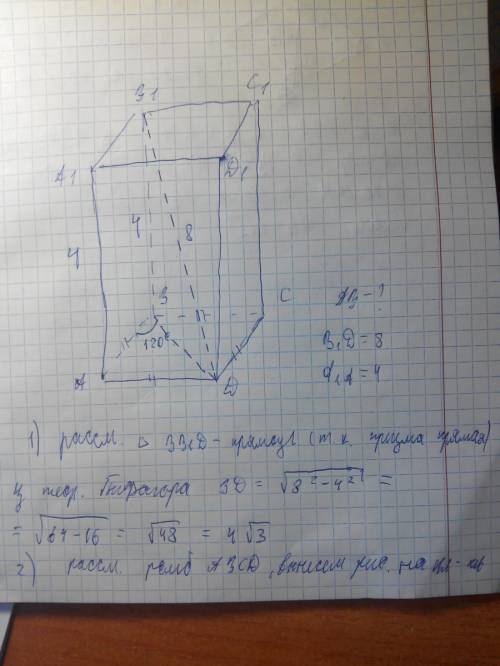 B1
C1
A1
D1
4
4
8
B
C
120°
A
D
AB - ?
B₁D = 8
A₁A = 4
1) рассм. △ BB₁D - прямоуг. (т.к. призма прямая)
Из теор. Пифагора BD = √8² - 4² =
= √64-16 = √48 = 4√3
2) рассм. ромб ABCD, вынесем рис. на